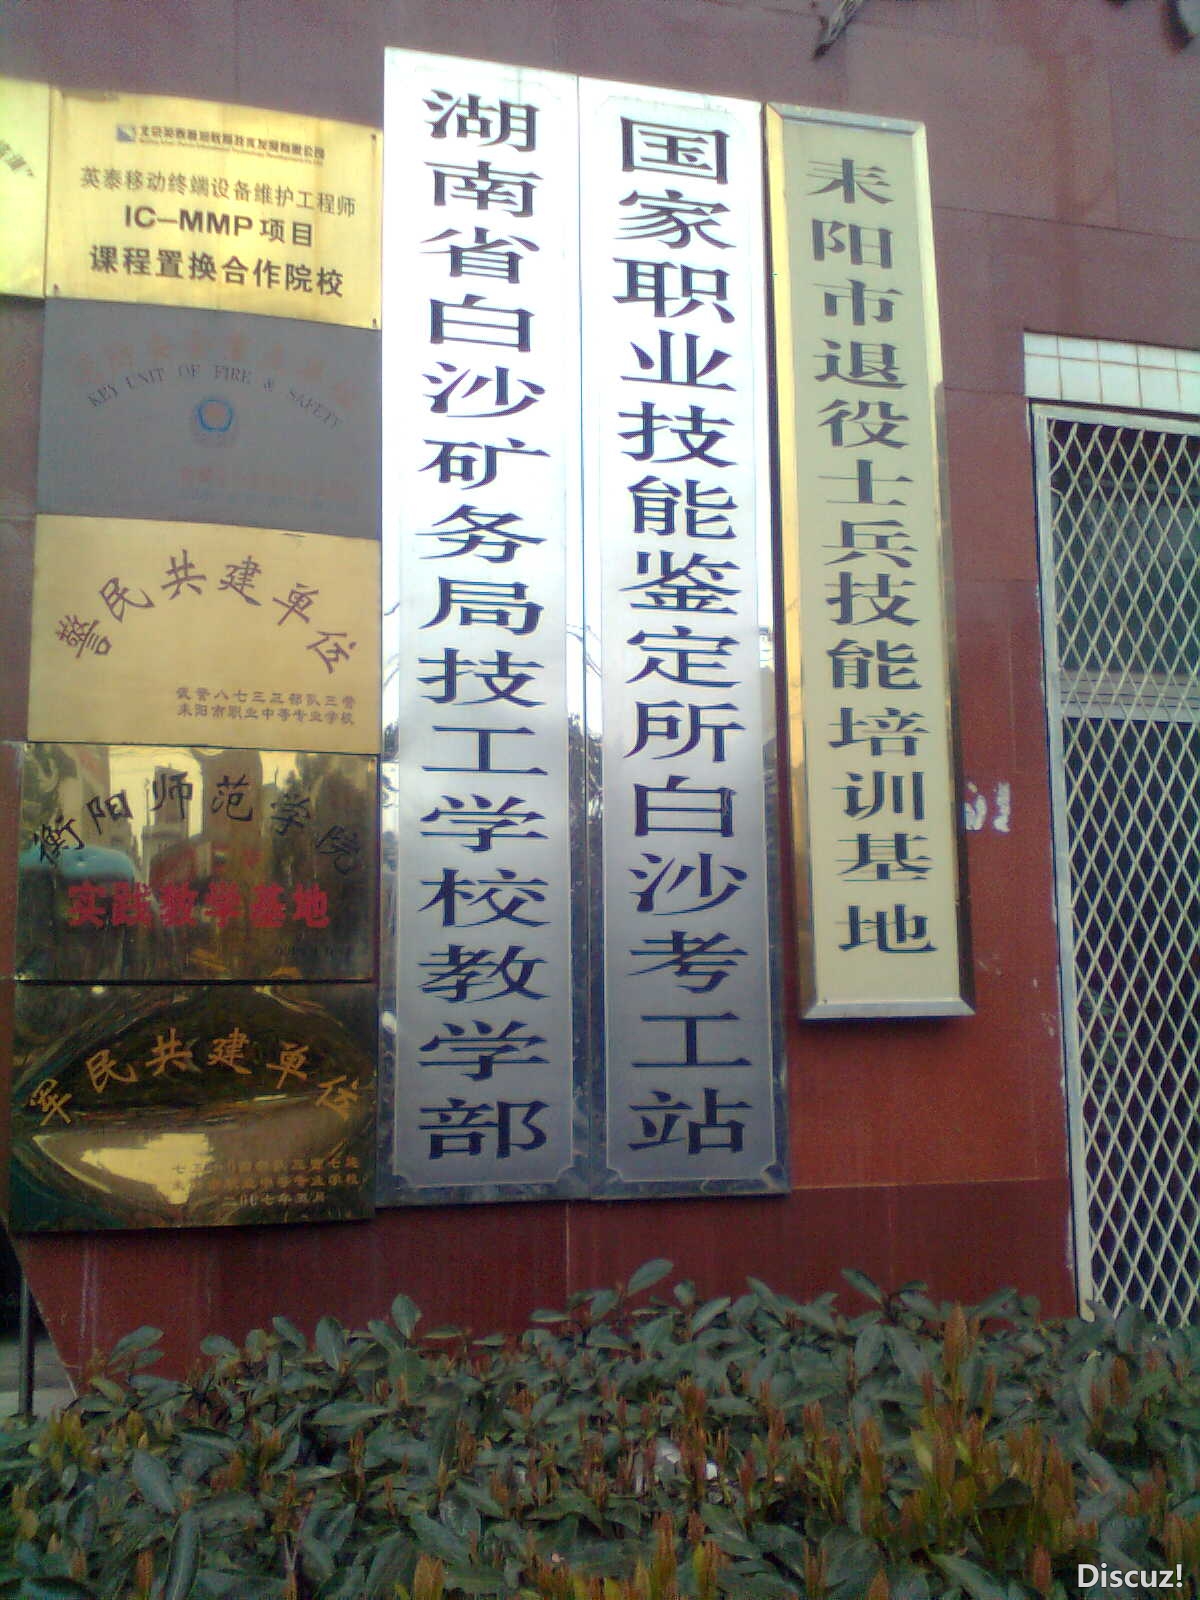 英泰移动终端设备维护工程师
IC-MMP 项目
课程置换合作院校
KEY UNIT OF FIRE & SAFETY
警民共建单位
武警八七三三部队三营
耒阳市职业中等专业学校
衡阳师范学院
实践教学基地
军民共建单位
市职业中等专业学校
二00七年五月
湖南省白沙矿务局技工学校教学部
国家职业技能鉴定所白沙考工站
耒阳市退役士兵技能培训基地
Discuz!